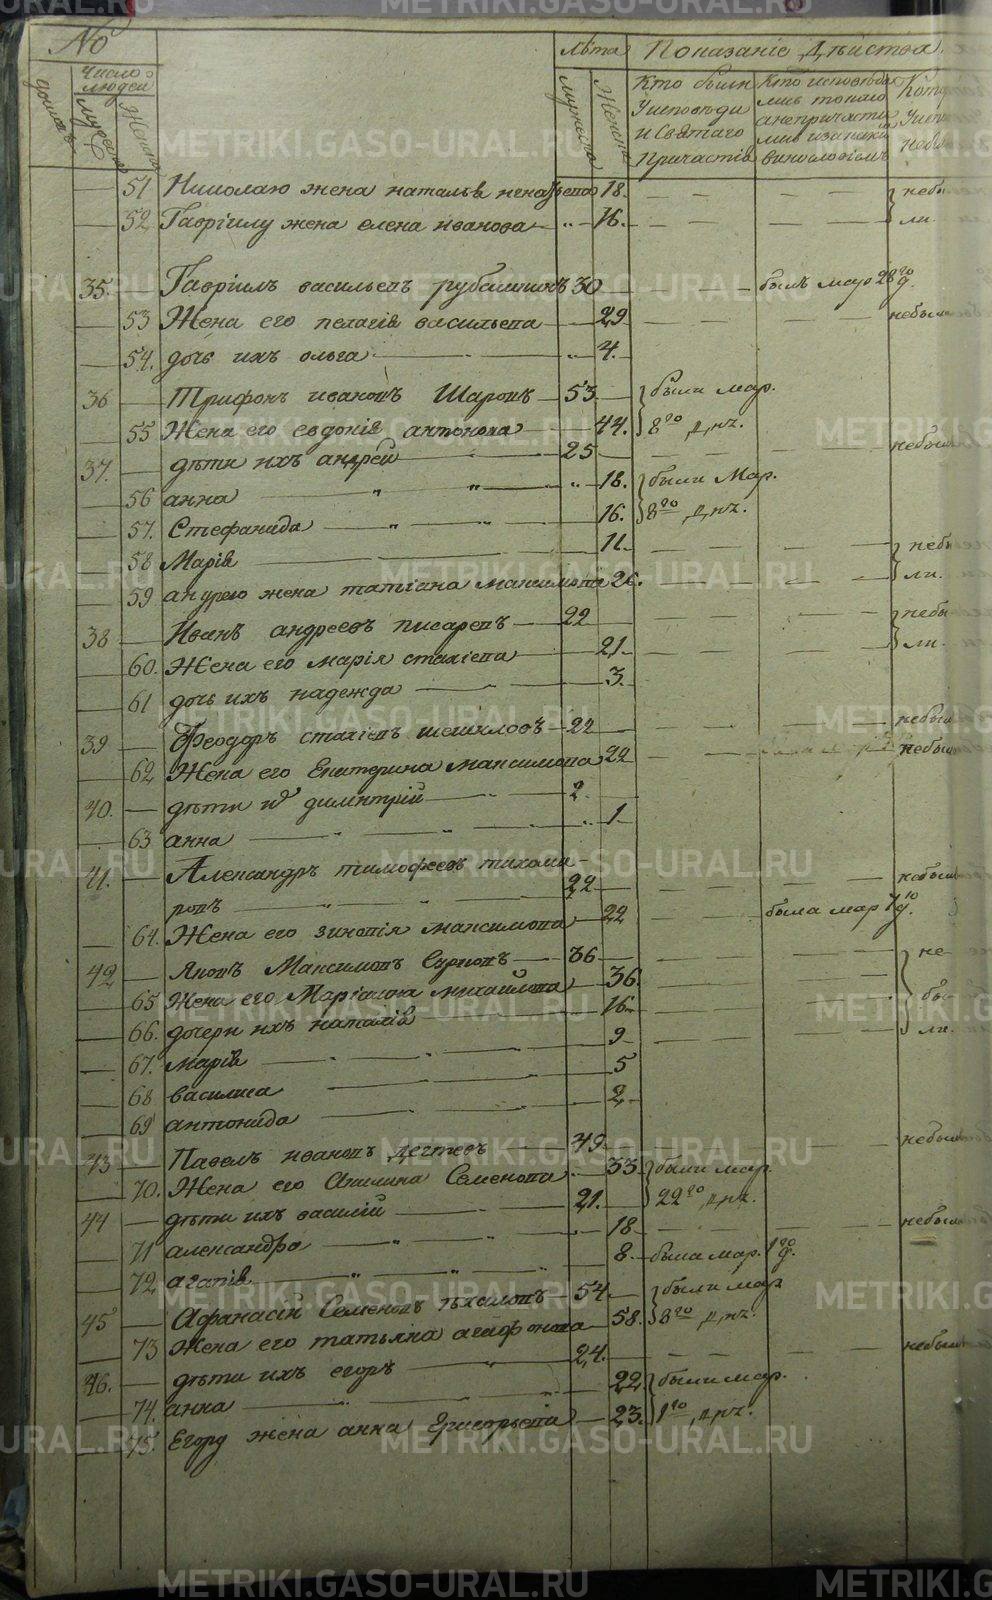 №
Лѣта Показанїе Дѣйства
домовъ
Число людей
мужеска
Женска
мужеска
Женска
Кто были У исповѣди и Святаго Причастїя
Кто исповѣда лись токмо а непричасти лись и за каким винословїемъ
51 Николаю жена наталья 18. небы
52 Гаврїилу жена елена иванова 16. ли.
35. Гаврїилъ васильевъ 30 былъ мар 28го д.
53 Жена его пелагїя васильева 29 небы
54. дочь ихъ ольга 4.
36 Трифонъ ивановъ Шаровъ 53. были мар.
55 Жена его евдокїя антонова 44. 8го днъ.
37. дѣти ихъ андрей 25 небы
56 анна 18. были Мар.
57. Стефанида 16. 8го днъ.
58 Марїя 11. небы
59 андрею жена татїана максимова 26. ли.
38 Иванъ андреевъ писаревъ 22 небы
60. Жена его марїя стахїева 21. ли.
61 дочь ихъ надежда 3.
39 Феодоръ стахїевъ 22 небы
62 Жена его Екатерина максимова 22 небы
40. дѣти их димитрїй 2.
63 анна 1.
41. Александръ тимофеевъ тихоми
ровъ 22 небы
64. Жена его зиновїя максимова 22 была мар 7го д.
42 Яковъ Максимовъ 36 не
65 Жена его Марїамна михайлова 36. бы
66. дочери ихъ наталїя 16. ли.
67. марїя 9
68 василиса 5
69 антонида 2
43 Павелъ ивановъ дегтевъ 49. небы
70. Жена его Акилина Семенова 53 были мар.
44 дѣти ихъ василїй 21. 22го днъ.
71 александра 18. небы
72 агапїя 8. была мар. 1го д.
45 Афанасїй Семеновъ 54. были мар
73 Жена его татьяна агафонова 58. 8го днъ.
46. дѣти ихъ егоръ 24. небы
74. анна 22 были мар.
75. Егору жена анна 23. 1го днъ.
METRIKI.GASO-URAL.RU